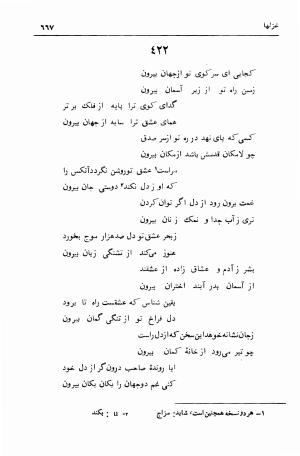 غزلها
٦٦٧
٤٢٢
کجایی ای سر کوی تو از جهان بیرون
زمین راه تو از زیر آسمان بیرون
گدای کوی ترا پایه از فلک برتر
همای عشق ترا سایه از جهان بیرون
کسی که پای نهد در ره تو از سر صدق
چو لامکان قدمش باشد از مکان بیرون
عشق تو روشن نگردد آنکس را
که او ز دل نکند۲ دوستی جان بیرون
غمت برون رود از دل اگر توان کردن
تری ز آب جدا و نمک ز نان بیرون
ز بحر عشق تو دل صدهزار موج بخورد
هنوز می‌کند از تشنگی زبان بیرون
بشر ز آدم و عشاق زاده از عشقند
از آسمان بدر آیند اختران بیرون
یقین شناس که عشقست راه تا برود
دل فراخ تو از تنگی گمان بیرون
زجان نشانه خواهد این سخن که از دل راست
چو تیر می‌رود از خانهٔ کمان بیرون
ایا روندهٔ صاحب درون گر از دل خود
کنی غم دوجهان را یکان یکان بیرون
۱- هر دو نسخه همچنین است؛ شاید: مزاج ۲- u : بکند